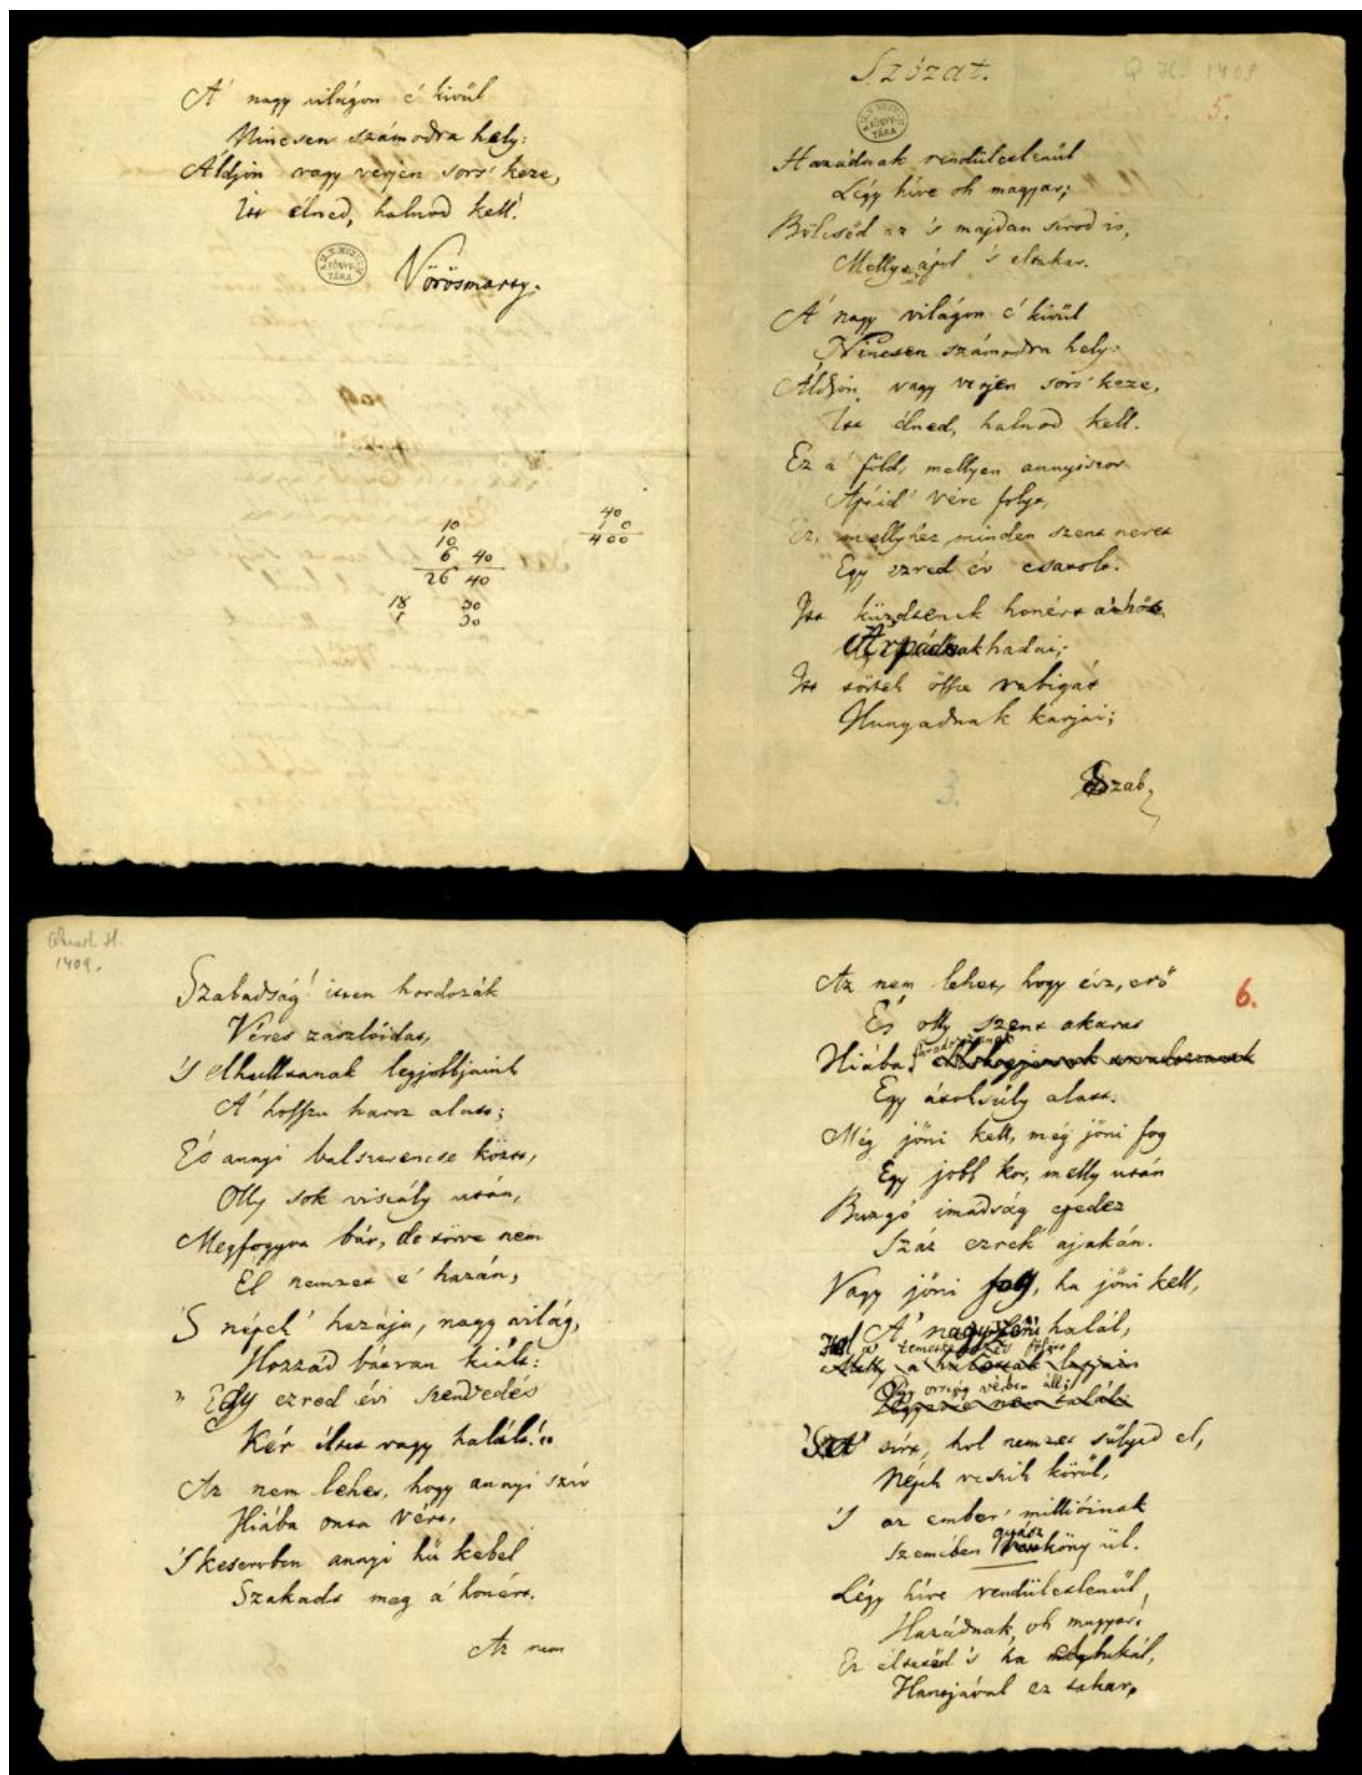 A' nagy világon é kivűl
Nincsen számodra hely:
Áldjon vagy verjen sors' keze,
Itt élned, halnod kell!
Vörösmarty.
10
10
6 40
26 40
18 30
1 30
40
10
400
Szózat.
Q H. 1409
5.
Hazádnak rendületlenűl
Légy híve oh magyar;
Bölcsőd az 's majdan sírod is,
Melly ápol 's eltakar.
A' nagy világon é kivűl
Nincsen számodra hely:
Áldjon vagy verjen sors' keze,
Itt élned, halnod kell.
Ez a' föld, mellyen annyiszor
Apáid' vére folyt,
Ez, mellyhez minden szent nevet
Egy ezred év csatolt.
Itt küzdtenek honért a' hős
Árpádnak hadai;
Itt törtek össze rabigát
Hunyadnak karjai;
3.
Szab,
Quart H.
1409.
Szabadság! itten hordozák
Véres zászlóidat,
'S elhulltanak legjobbjaink
A' hosszu harcz alatt;
És annyi balszerencse közt,
Olly sok viszály után,
Megfogyva bár, de törve nem
Él nemzet e' hazán,
'S népek' hazája, nagy világ,
Hozzád bátran kiált:
" Egy ezred évi szenvedés
Kér éltet vagy halált!"
Az nem lehet, hogy annyi szív
Hiába onta vért,
'S keservben annyi hű kebel
Szakadt meg a' honért.
Az nem
Az nem lehet, hogy ész, erő
6.
És olly szent akarat
Hiába
Egy átoksúly alatt.
Még jőni kell, még jőni fog
Egy jobb kor, melly után
Buzgó imadság epedez
Száz ezrek' ajakán.
Vagy jőni fog, ha jőni kell,
A' nagyszerü halál,
Hol a' temetkezés fölött
Egy ország vérben áll;
'S a' sírt, hol nemzet sűlyed el,
Népek veszik körűl,
'S az ember' millióinak
Szemében gyászköny űl.
Légy híve rendületlenűl,
Hazádnak, oh magyar:
Ez éltetőd 's ha elbukál,
Hantjával ez takar,